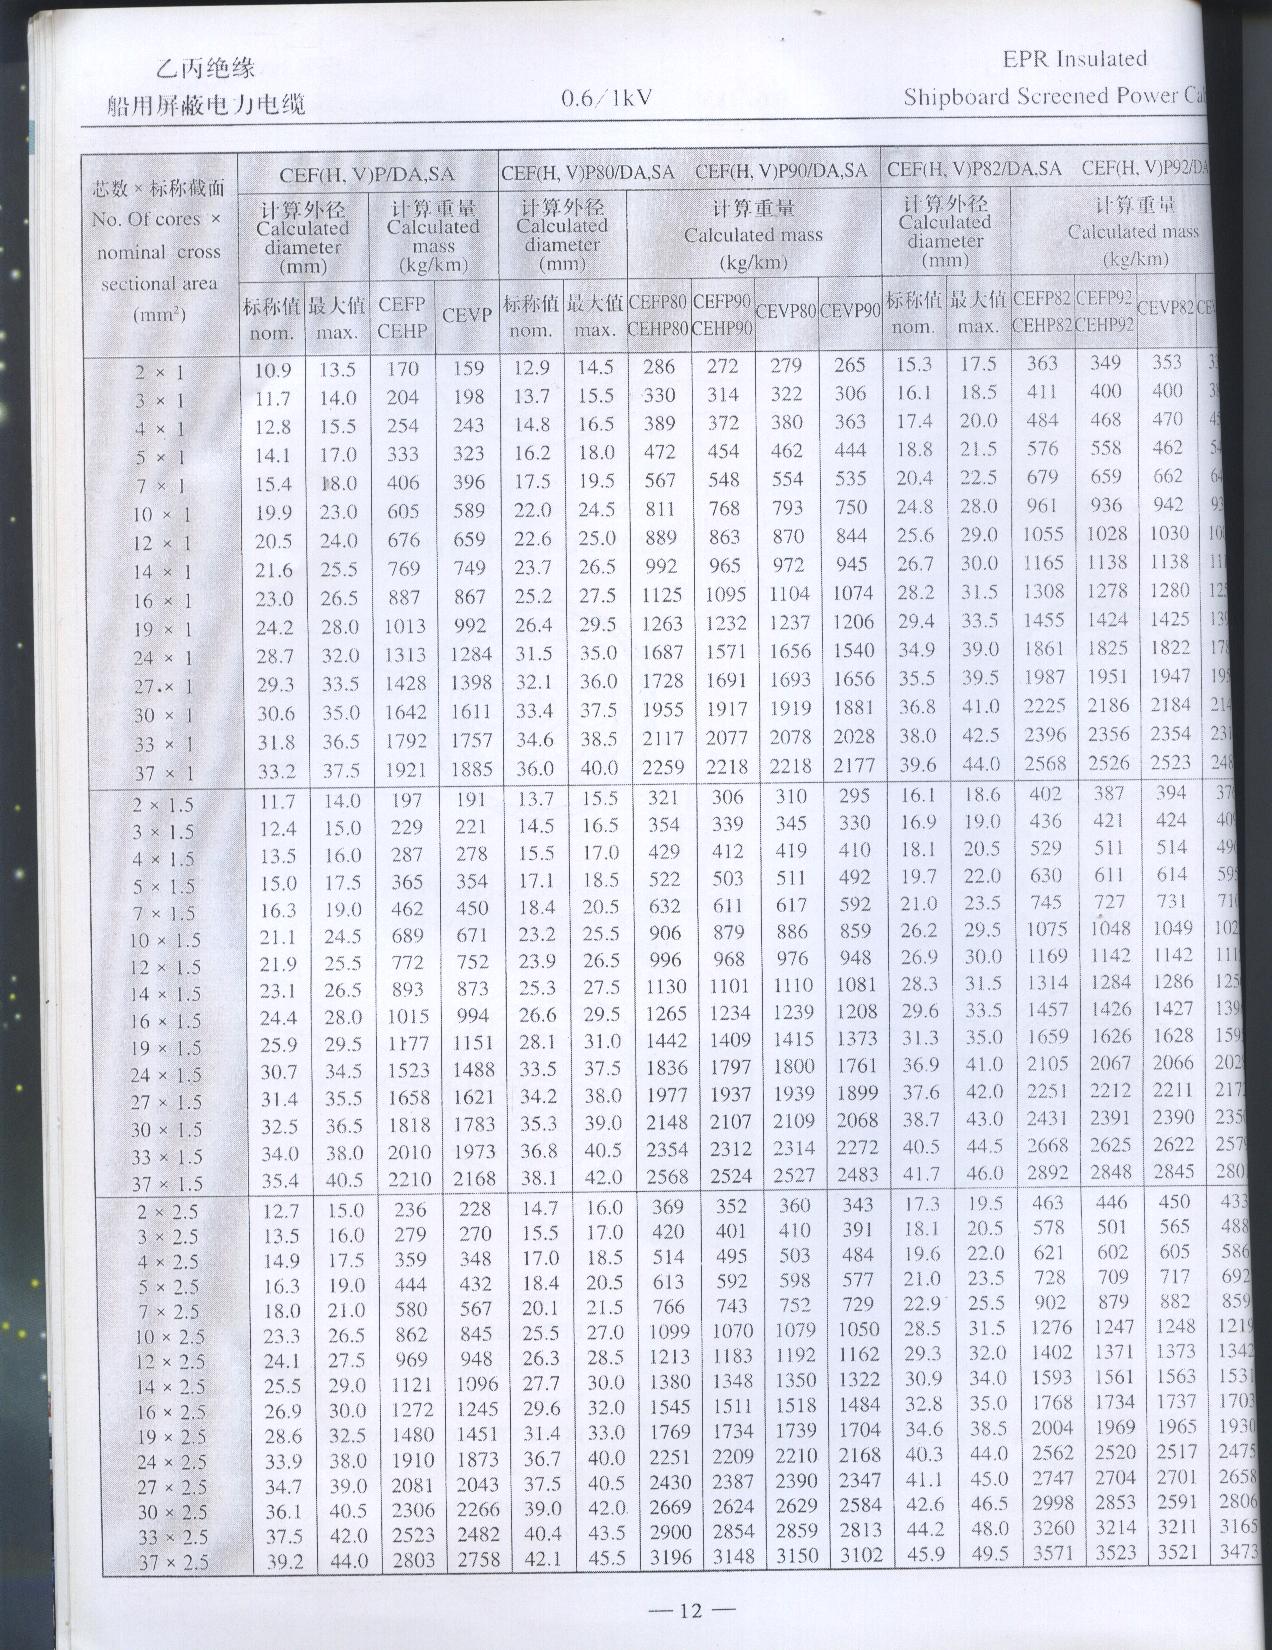 乙丙绝缘 EPR Insulated
船用屏蔽电力电缆 0.6/1kV Shipboard Screened Power
芯数×标称截面 No. Of cores × nominal cross sectional area (mm²)
CEF(H, V)P/DA,SA CEF(H, V)P80/DA,SA CEF(H, V)P90/DA,SA CEF(H, V)P82/DA,SA CEF(H, V)P92/DA
计算外径 Calculated diameter (mm) 计算重量 Calculated mass (kg/km) 计算外径 Calculated diameter (mm) 计算重量 Calculated mass (kg/km) 计算外径 Calculated diameter (mm) 计算重量 Calculated mass (kg/km)
标称值 nom. 最大值 max. CEFP CEHP CEVP 标称值 nom. 最大值 max. CEFP80 CEHP80 CEFP90 CEHP90 CEVP80 CEVP90 标称值 nom. 最大值 max. CEFP82 CEHP82 CEFP92 CEHP92 CEVP82
2 × 1 10.9 13.5 170 159 12.9 14.5 286 272 279 265 15.3 17.5 363 349 353
3 × 1 11.7 14.0 204 198 13.7 15.5 330 314 322 306 16.1 18.5 411 400 400
4 × 1 12.8 15.5 254 243 14.8 16.5 389 372 380 363 17.4 20.0 484 468 470
5 × 1 14.1 17.0 333 323 16.2 18.0 472 454 462 444 18.8 21.5 576 558 462
7 × 1 15.4 18.0 406 396 17.5 19.5 567 548 554 535 20.4 22.5 679 659 662
10 × 1 19.9 23.0 605 589 22.0 24.5 811 768 793 750 24.8 28.0 961 936 942
12 × 1 20.5 24.0 676 659 22.6 25.0 889 863 870 844 25.6 29.0 1055 1028 1030
14 × 1 21.6 25.5 769 749 23.7 26.5 992 965 972 945 26.7 30.0 1165 1138 1138
16 × 1 23.0 26.5 887 867 25.2 27.5 1125 1095 1104 1074 28.2 31.5 1308 1278 1280
19 × 1 24.2 28.0 1013 992 26.4 29.5 1263 1232 1237 1206 29.4 33.5 1455 1424 1425
24 × 1 28.7 32.0 1313 1284 31.5 35.0 1687 1571 1656 1540 34.9 39.0 1861 1825 1822
27 × 1 29.3 33.5 1428 1398 32.1 36.0 1728 1691 1693 1656 35.5 39.5 1987 1951 1947
30 × 1 30.6 35.0 1642 1611 33.4 37.5 1955 1917 1919 1881 36.8 41.0 2225 2186 2184
33 × 1 31.8 36.5 1792 1757 34.6 38.5 2117 2077 2078 2028 38.0 42.5 2396 2356 2354
37 × 1 33.2 37.5 1921 1885 36.0 40.0 2259 2218 2218 2177 39.6 44.0 2568 2526 2523
2 × 1.5 11.7 14.0 197 191 13.7 15.5 321 306 310 295 16.1 18.6 402 387 394
3 × 1.5 12.4 15.0 229 221 14.5 16.5 354 339 345 330 16.9 19.0 436 421 424
4 × 1.5 13.5 16.0 287 278 15.5 17.0 429 412 419 410 18.1 20.5 529 511 514
5 × 1.5 15.0 17.5 365 354 17.1 18.5 522 503 511 492 19.7 22.0 630 611 614
7 × 1.5 16.3 19.0 462 450 18.4 20.5 632 611 617 592 21.0 23.5 745 727 731
10 × 1.5 21.1 24.5 689 671 23.2 25.5 906 879 886 859 26.2 29.5 1075 1048 1049
12 × 1.5 21.9 25.5 772 752 23.9 26.5 996 968 976 948 26.9 30.0 1169 1142 1142
14 × 1.5 23.1 26.5 893 873 25.3 27.5 1130 1101 1110 1081 28.3 31.5 1314 1284 1286
16 × 1.5 24.4 28.0 1015 994 26.6 29.5 1265 1234 1239 1208 29.6 33.5 1457 1426 1427
19 × 1.5 25.9 29.5 1177 1151 28.1 31.0 1442 1409 1415 1373 31.3 35.0 1659 1626 1628
24 × 1.5 30.7 34.5 1523 1488 33.5 37.5 1836 1797 1800 1761 36.9 41.0 2105 2067 2066
27 × 1.5 31.4 35.5 1658 1621 34.2 38.0 1977 1937 1939 1899 37.6 42.0 2251 2212 2211
30 × 1.5 32.5 36.5 1818 1783 35.3 39.0 2148 2107 2109 2068 38.7 43.0 2431 2391 2390
33 × 1.5 34.0 38.0 2010 1973 36.8 40.5 2354 2312 2314 2272 40.5 44.5 2668 2625 2622
37 × 1.5 35.4 40.5 2210 2168 38.1 42.0 2568 2524 2527 2483 41.7 46.0 2892 2848 2845
2 × 2.5 12.7 15.0 236 228 14.7 16.0 369 352 360 343 17.3 19.5 463 446 450 433
3 × 2.5 13.5 16.0 279 270 15.5 17.0 420 401 410 391 18.1 20.5 578 501 565 488
4 × 2.5 14.9 17.5 359 348 17.0 18.5 514 495 503 484 19.6 22.0 621 602 605 586
5 × 2.5 16.3 19.0 444 432 18.4 20.5 613 592 598 577 21.0 23.5 728 709 717 692
7 × 2.5 18.0 21.0 580 567 20.1 21.5 766 743 752 729 22.9 25.5 902 879 882 859
10 × 2.5 23.3 26.5 862 845 25.5 27.0 1099 1070 1079 1050 28.5 31.5 1276 1247 1248 1219
12 × 2.5 24.1 27.5 969 948 26.3 28.5 1213 1183 1192 1162 29.3 32.0 1402 1371 1373 1342
14 × 2.5 25.5 29.0 1121 1096 27.7 30.0 1380 1348 1350 1322 30.9 34.0 1593 1561 1563 1531
16 × 2.5 26.9 30.0 1272 1245 29.6 32.0 1545 1511 1518 1484 32.8 35.0 1768 1734 1737 1703
19 × 2.5 28.6 32.5 1480 1451 31.4 33.0 1769 1734 1739 1704 34.6 38.5 2004 1969 1965 1930
24 × 2.5 33.9 38.0 1910 1873 36.7 40.0 2251 2209 2210 2168 40.3 44.0 2562 2520 2517 2475
27 × 2.5 34.7 39.0 2081 2043 37.5 40.5 2430 2387 2390 2347 41.1 45.0 2747 2704 2701 2658
30 × 2.5 36.1 40.5 2306 2266 39.0 42.0 2669 2624 2629 2584 42.6 46.5 2998 2853 2591 2806
33 × 2.5 37.5 42.0 2523 2482 40.4 43.5 2900 2854 2859 2813 44.2 48.0 3260 3214 3211 3165
37 × 2.5 39.2 44.0 2803 2758 42.1 45.5 3196 3148 3150 3102 45.9 49.5 3571 3523 3521 3473
— 12 —